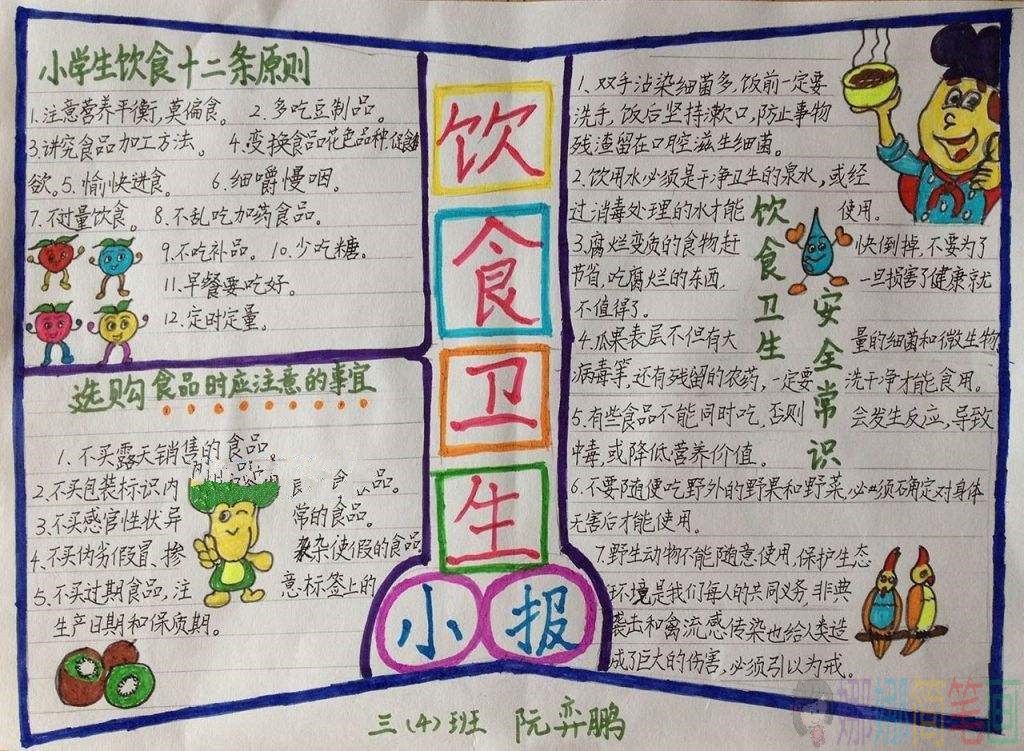 小学生饮食十二条原则
1.注意营养平衡,莫偏食。 2.多吃豆制品。
3.讲究食品加工方法。 4.变换食品花色品种,促食
欲。5.愉快进食。 6.细嚼慢咽。
7.不过量饮食。 8.不乱吃加药食品。
9.不吃补品。 10.少吃糖。
11.早餐要吃好。
12.定时定量。
选购食品时应注意的事宜
1.不买露天销售的食品。
2.不买包装标识内 食 品。
3.不买感官性状异 常的食品。
4.不买伪劣假冒、掺 杂使假的食品
5.不买过期食品,注 意标签上的
生产日期和保质期。
饮
食
卫
生
小报
饮食卫生
安全常识
1.双手沾染细菌多,饭前一定要
洗手,饭后坚持漱口,防止事物
残渣留在口腔滋生细菌。
2.饮用水必须是干净卫生的泉水,或经
过消毒处理的水才能 使用。
3.腐烂变质的食物赶 快倒掉,不要为了
节省,吃腐烂的东西, 一旦损害了健康就
不值得了。
4.瓜果表层不但有大 量的细菌和微生物
病毒等,还有残留的农药,一定要 洗干净才能食用。
5.有些食品不能同时吃,否则 会发生反应,导致
中毒,或降低营养价值。
6.不要随便吃野外的野果和野菜,必须确定对身体
无害后才能使用。
7.野生动物不能随意使用,保护生态
环境是我们每人的共同义务,非典
袭击和禽流感传染也给人类造
成了巨大的伤害,必须引以为戒。
三(4)班 阮弈鹏
娜娜简笔画